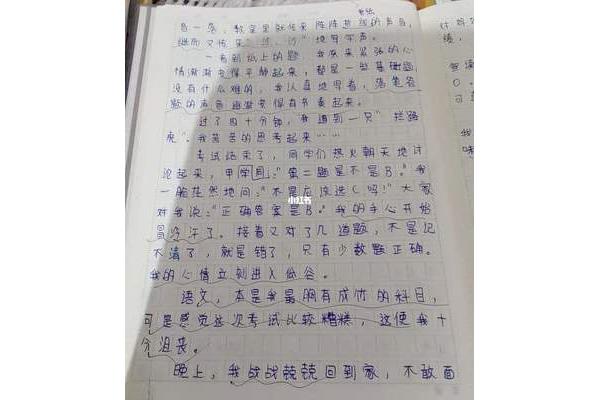 音一落，教室里就传来阵阵
继而又传来"沙，沙"地写字声。
一看到纸上的题，我原来紧张的心
情渐渐变得平静起来，都是一些基础题，
没有什么难的，我认真地写着，落笔答
题的声音逐渐变得有节奏起来。
过了四十分钟，我遇到一只"拦路
虎"，我苦苦的思考起来……
考试结束了，同学们热火朝天地讨
论起来，甲同
学问："第二题是不是B。"我
一脸茫然地问："不是应该选C吗！"大家
对我说："正确答案是B。"我的手心开始
冒冷汗了。接着又对了几道题，不是记
不清了，就是错了，只有少数题正确。
我的心情立刻进入低谷。
语文，本是我最胸有成竹的科目，
可是感觉这次考试比较糟糕，这使我十
分沮丧。
晚上，我战战兢兢回到家，不敢面
小红书